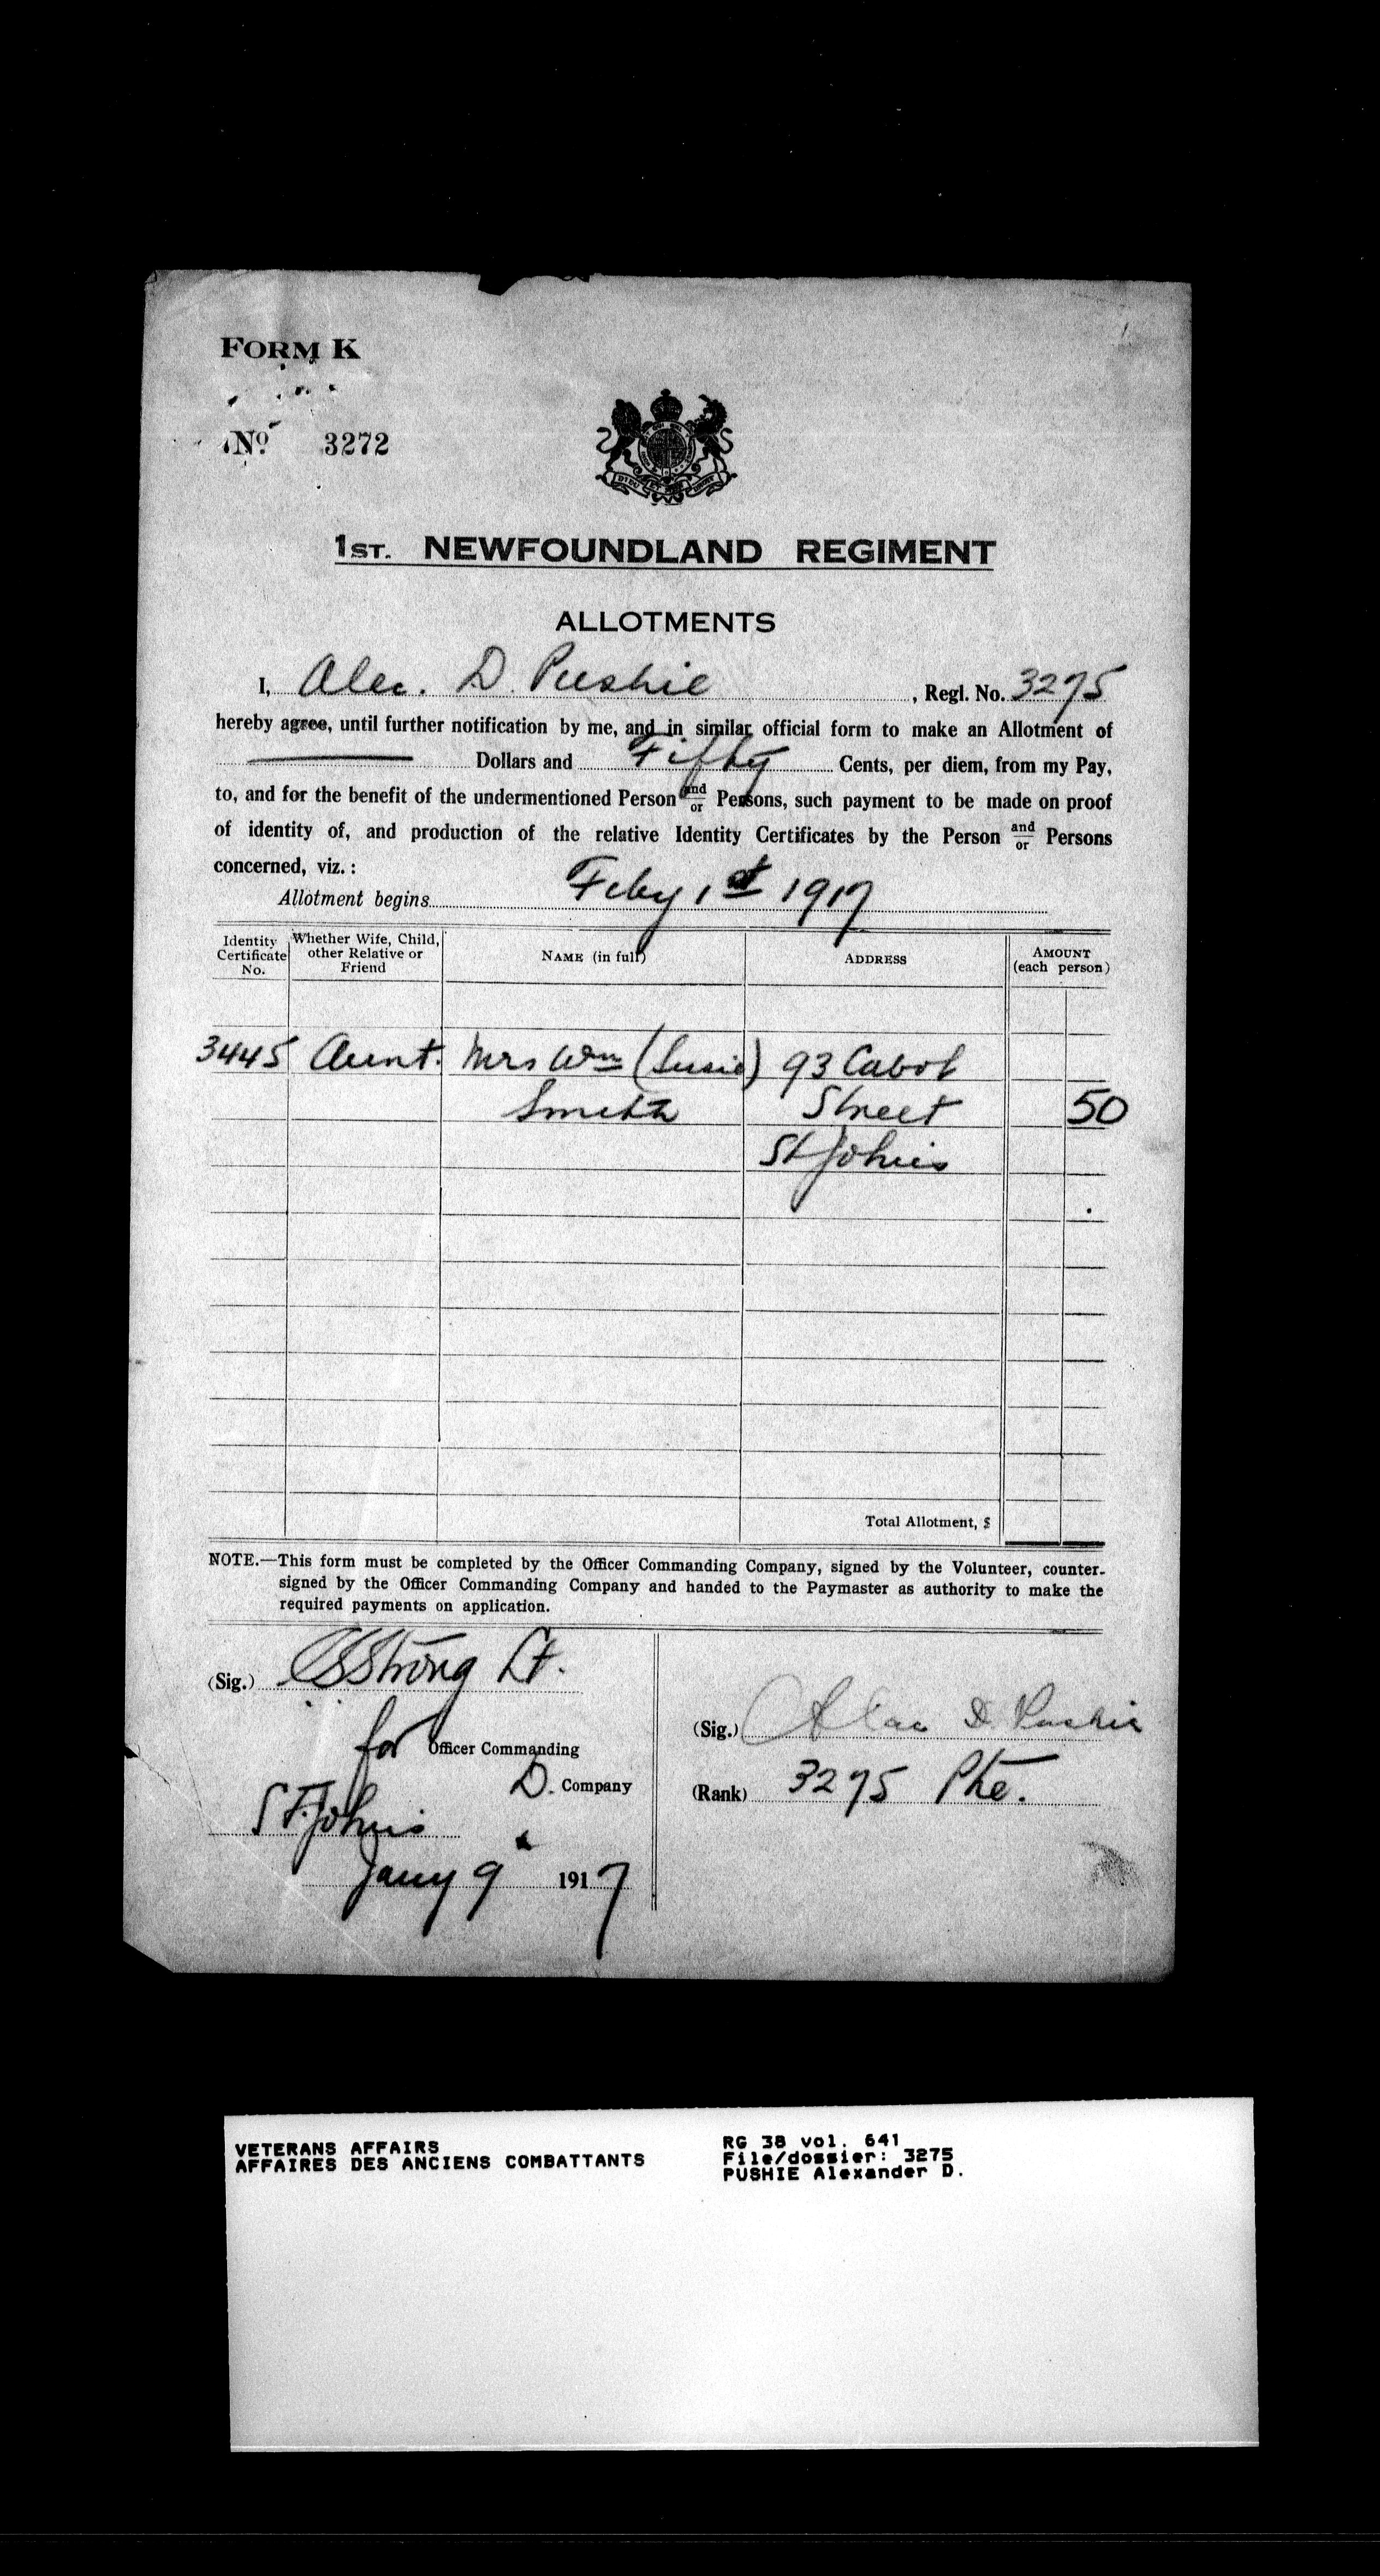 FORM K
No. 3272
1ST. NEWFOUNDLAND REGIMENT
ALLOTMENTS
I, Alec. D. Pushie, Regl. No. 3275
hereby agree, until further notification by me, and in similar official form to make an Allotment of
Dollars and Fifty Cents, per diem, from my Pay,
to, and for the benefit of the undermentioned Person and/or Persons, such payment to be made on proof
of identity of, and production of the relative Identity Certificates by the Person and/or Persons
concerned, viz.:
Allotment begins Feby 1st 1917
Identity Certificate No. Whether Wife, Child, other Relative or Friend NAME (in full) ADDRESS AMOUNT (each person)
3445 Aunt. Mrs Wm (Susie) 93 Cabot
Smith Street 50
St Johns
Total Allotment, $
NOTE.—This form must be completed by the Officer Commanding Company, signed by the Volunteer, counter-
signed by the Officer Commanding Company and handed to the Paymaster as authority to make the
required payments on application.
(Sig.) Strong Lt.
for Officer Commanding
D. Company
St. Johns
Jany 9 1917
(Sig.) Alec D. Pushie
(Rank) 3275 Pte.
VETERANS AFFAIRS
AFFAIRES DES ANCIENS COMBATTANTS
RG 38 vol. 641
File/dossier: 3275
PUSHIE Alexander D.